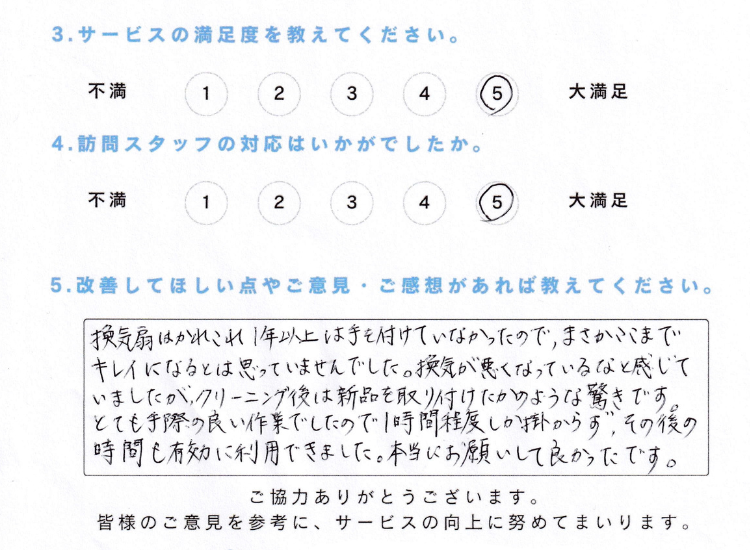 3.サービスの満足度を教えてください。
不満 1 2 3 4 5 大満足
4.訪問スタッフの対応はいかがでしたか。
不満 1 2 3 4 5 大満足
5.改善してほしい点やご意見・ご感想があれば教えてください。
換気扇はかれこれ1年以上は手を付けていなかったので、まさかここまで
キレイになるとは思っていませんでした。換気が悪くなっているなと感じて
いましたが、クリーニング後は新品を取り付けたかのような驚きです。
とても手際の良い作業でしたので1時間程度しか掛からず、その後の
時間も有効に利用できました。本当にお願いして良かったです。
ご協力ありがとうございます。
皆様のご意見を参考に、サービスの向上に努めてまいります。